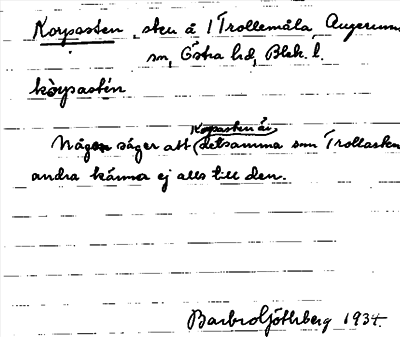 Korpasten, sten å 1 Trollemåla, Augerums
sn, Östra hd, Blek. l.
kòrpastén
Någon säger att (Korpasten är) detsamma som Trollasten
andra känna ej alls till den.
Barbro Göthberg 1934.